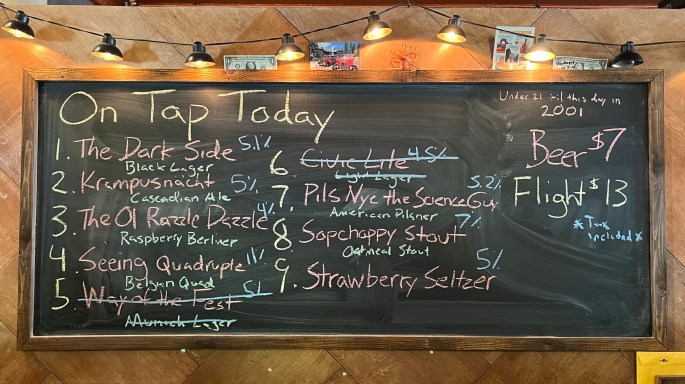 On Tap Today
1. The Dark Side 5.1%
Black Lager
2. Krampusnacht 5%
Cascadian Ale
3. The Ol Razzle Dazzle 4%
Raspberry Berliner
4. Seeing Quadruple 11%
Belgian Quad
5. Way of the Fest 5%
Munich Lager
6. Civic Lite 4.5%
Light Lager
7. Pils Nye the Science Guy 5.2%
American Pilsner
8 Sopchoppy Stout 7%
Oatmeal Stout
9. Strawberry Seltzer 5%
Under 21 'til this day in
2001
Beer $7
Flight $13
* Tax
included *